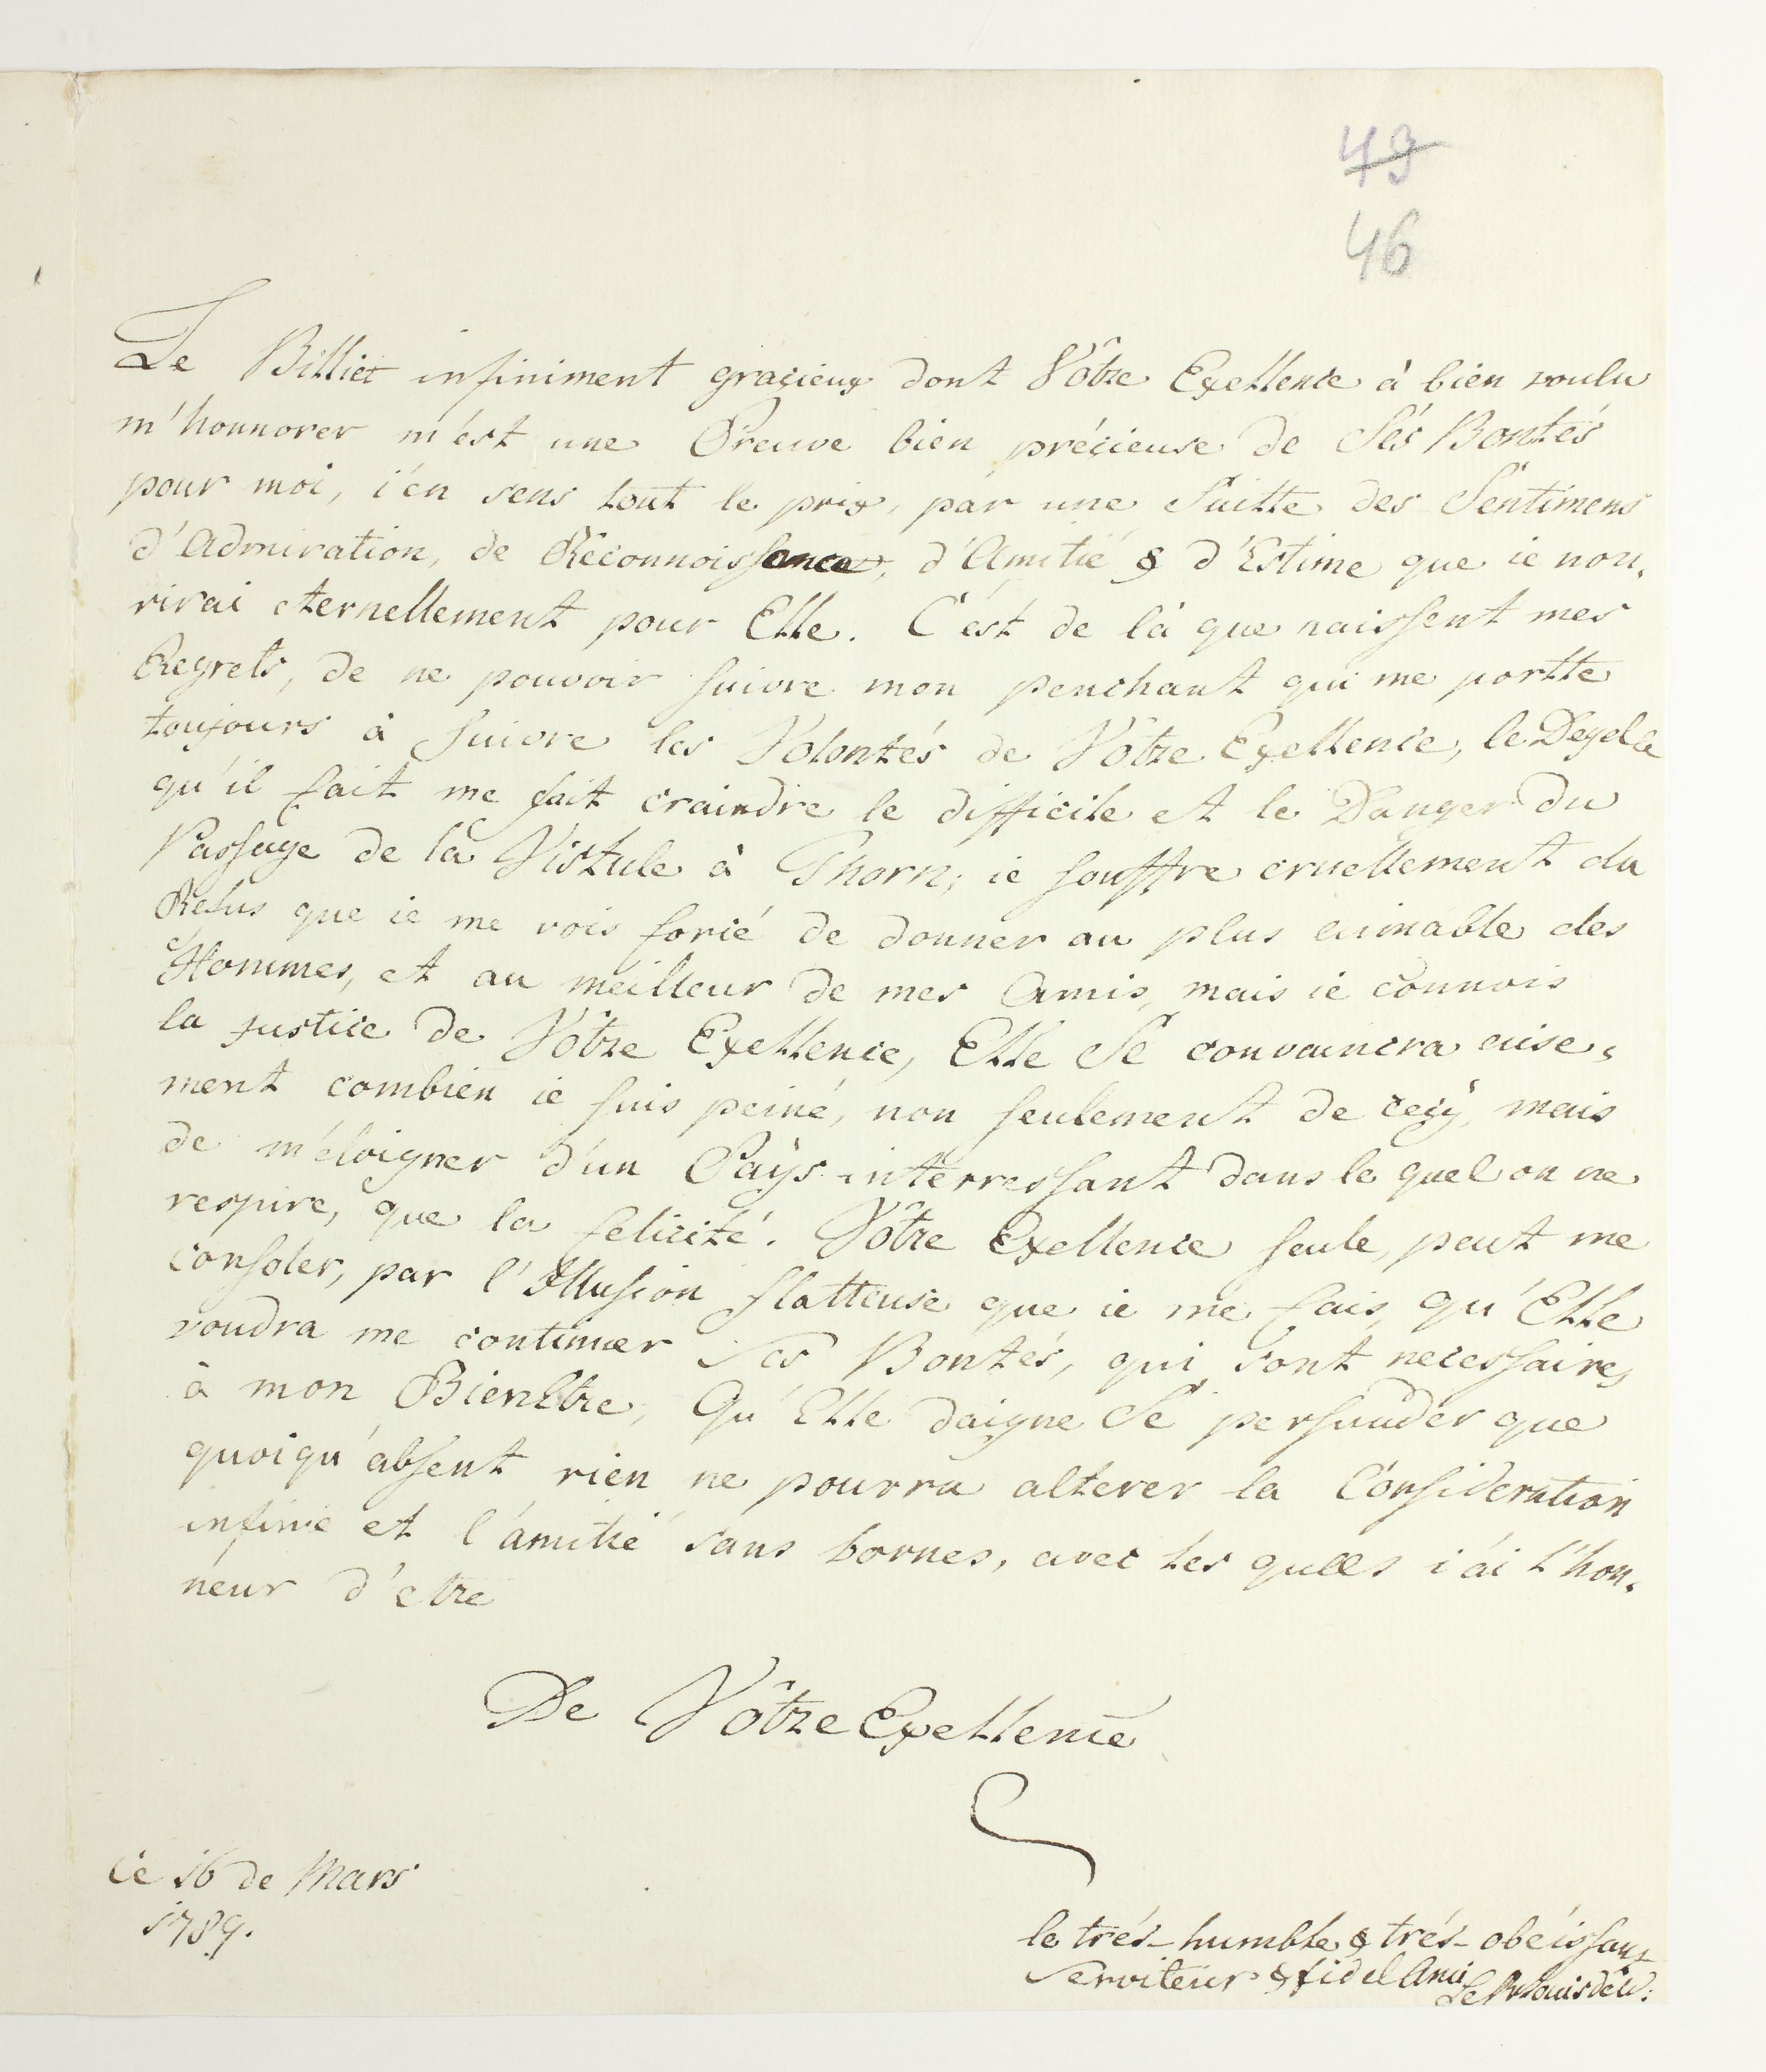 49
46
Le Billiet infiniment graçieux dont Vôtre Exellence à bien voulu
m'honnorer m'est une Preuve bien préçieuse de Sés Bontés
pour moi, i'en sens tout le prix, par une Suitte des Sentimens
d'Admiration, de Réconnoissance, d'Amitié & d'Estime que ie nou,
rirai eternellement pour Elle. C'est de là que naissent mes
Regrets, de ne pouvoir suivre mon penchant qui me portte
toujours à suivre les Volontés de Vôtre Exellence, le Degel
qu'il fait me fait craindre le difficile et le Danger du
Passage de la Vistule à Thorn; ie souffre cruellement du
Refus que ie me vois forcé de donner au plus aimable des
Hommes, et au meilleur de mes Amis, mais ie connois
la justice de Vôtre Exellence, Elle Se convaincra aise,
ment combien ie suis peiné, non seulement de ceçy, mais
de m'éloigner d'un Païs interressant dans le quel on ne
respire, que la felicité. Vôtre Exellence seule, peut me
consoler, par l'Illusion flatteuse que ie me fais, qu'Elle
voudra me continuer Ses Bontés, qui sont necessaires
à mon Bienêtre, Qu'Elle daigne Se persuader que
quoiqu'absent rien ne pourra alterer la Consideration
infinie et l'amitié sans bornes, avec les quelles i'ai l'hon,
neur d'etre
De Vôtre Exellence
Ce 16 de Mars
1789.
le trés-humble & trés-obéissant
Serviteur & fidel Ami
Le Louis de W: